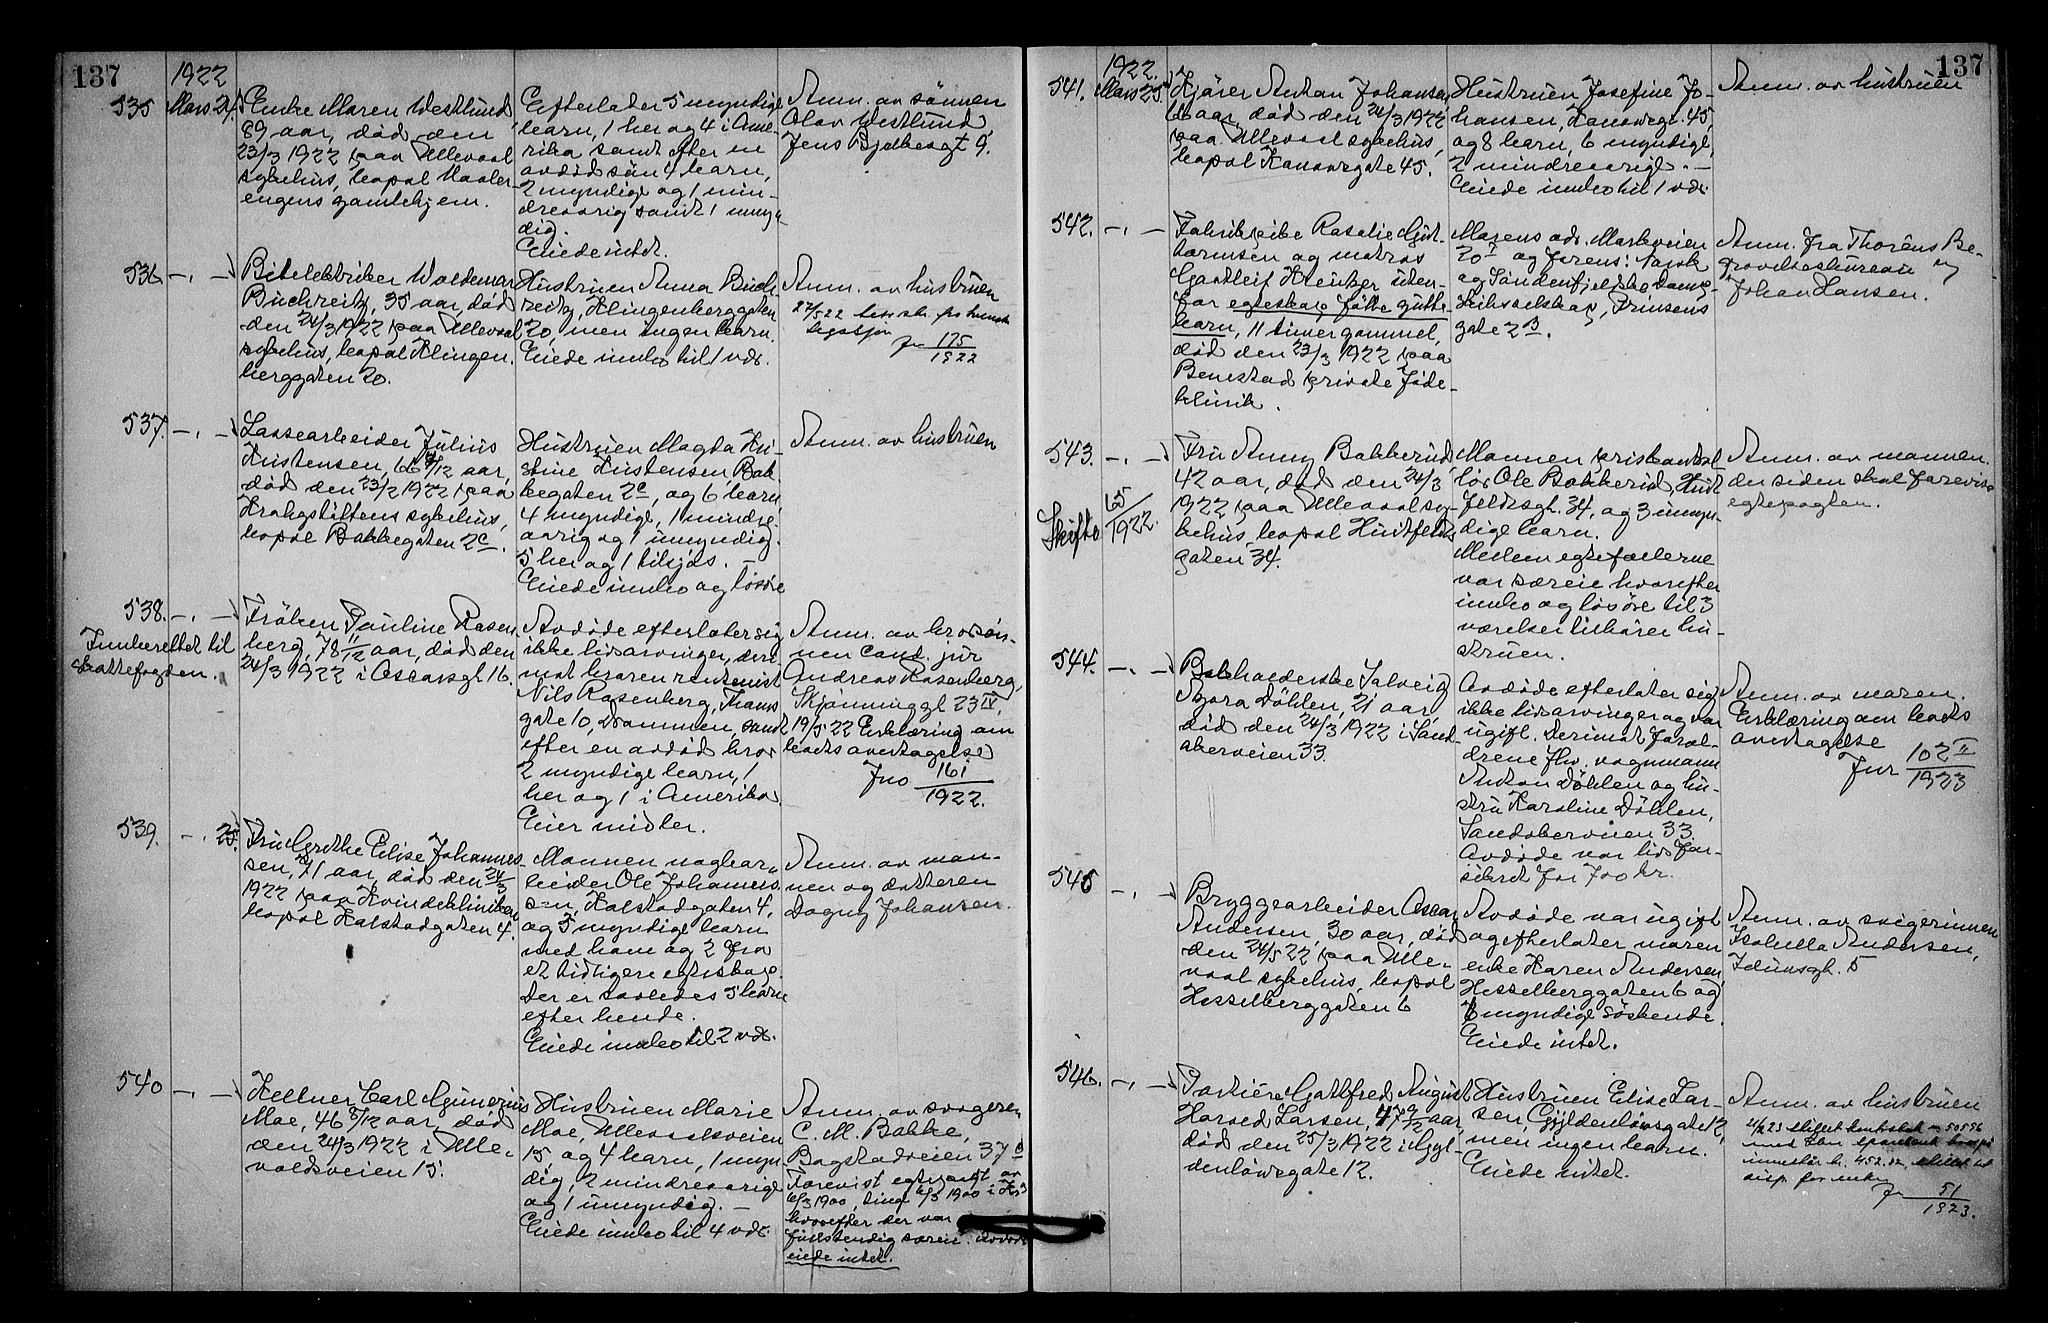 137
1922
535 Mars 24.
Enke Maren Westlund
89 aar, død den
23/3 1922 paa Ullevaal
sykehus, bopæl Vaaler-
engens gamlehjem.
Efterlater 5 myndige
barn, 1 her og 4 i Ame-
rika samt efter en
avdød søn 4 barn,
2 myndige og 1 min-
dreaarig samt 1 umyn-
dig.
Eiede intet.
Anm. av sønnen
Olav Westlund
Jens Bjelkesgt 9.
536 -,-
Woldemar
Buchreitz, 35 aar, død
den 24/3 1922 paa Ullevaal
sykehus, bopæl Klingen-
berggaten 20.
Hustruen Anna Buch-
reitz, Klingenberggaten
20, men ingen barn.
Eiede innbo til 1 vær.
Anm. av hustruen
27/5 22
175
1922
537. -,-
Lossearbeider Julius
Kristensen, 66 aar,
død den 23/2 1922 paa
Krohgstiftens sykehus,
bopæl Bakkegaten 2c.
Hustruen Magda Kri-
stine Kristensen Bak-
kegaten 2c, og 6 barn
4 myndige, 1 mindre-
aarig og 1 umyndig.
5 her og 1 tilsjøs. -
Eiede innbo og løsøre
Anm. av hustruen
538. -,-
Innberettet til
skattefogden.
Frøken Pauline Rosen-
berg, 78 11/12 aar, død den
24/3 1922 i Oscarsgt 16.
Avdøde efterlater sig
ikke livsarvinger, deri-
mot broren rentenist
Nils Rosenberg, Thams
gate 10, Drammen, samt
efter en avdød bror
2 myndige barn, 1
her og 1 i Amerika.
Eier midler.
Anm. av brorsøn-
nen cand. jur
Andreas Rosenberg,
Skjønninggt 23 IV.
19/5 22 Erklæring om
boets overtagelse
Jno 161
1922.
539. -. 25.
Fru Grethe Elise Johannes-
sen, 71 aar, død den 24/3
1922 paa Kvindeklinikken
bopæl Kalstadgaten 4.
Mannen vognar-
beider Ole Johannes-
sen, Kalstadgaten 4,
og 3 myndige barn
med ham og 2 fra
et tidligere egteskap.
Der er saaledes 5 barn
efter hende.
Eiede innbo til 2 vær.
Anm. av man-
nen og datteren
Dagny Johansen.
540 -,-
Kellner Carl Gunerius
Moe, 46 8/12 aar, død
den 24/3 1922 i Ulle-
vaalsveien 15.
Hustruen Marie
Moe, Ullevaalsveien
15 og 4 barn, 1 myn-
dig, 2 mindreaarige
og 1 umyndig. -
Eiede innbo til 4 vær.
Anm. av svogeren
C. M. Bakke,
Bogstadveien 37 c
Forevist egtepagt av
6/3 1900, tingl 6/3 1900 i
hvorefter der var
fullstendig særeie. Avdøde
eiede intet.
137
1922.
541. Mars 25.
Kjører Anton Johansen
aar, død den 24/3 1922
paa Ullevaal sykehus,
bopæl Kanowsgate 45.
Hustruen Josefine Jo-
hansen, Kanowsgt. 45,
og 8 barn, 6 myndige,
2 mindreaarige. -
Eiede innbo til 1 vær.
Anm. av hustruen
542. -,-
Fabrikpike Rosalie Gut-
tormsen og matros
Gottleif uten-
for egteskap fødte gutte-
barn, 11 timer gammel,
død den 23/3 1922 paa
Benestad private føde-
klinik.
Morens adr. Markveien
20 og farens: Narvik
og Søndenfjelske Damp-
skibsselskap, Prinsens
gate 2 B.
Anm. fra Thorèns Be-
gravelsesbureau v/
Johan Hansen.
543. -,-
Skifte 65
1922.
Fru Anny Bakkerud,
42 aar, død den 24/3
1922 paa Ullevaal sy-
kehus bopæl Huitfeldts
gaten 34.
Mannen
Ole Bakkerud, Huit
feldtsgt. 34, og 3 umyn-
dige barn.
Mellem egtefællerne
var særeie hvorefter
innbo og løsøre til 3
værelser tilhører hu-
struen.
Anm. av mannen
der siden skal forevise
egtepagten.
544. -,-
Bokholderske Solveig
Thora Døhlen, 21 aar,
død den 24/3 1922 i Sand-
akerveien 33.
Avdøde efterlater sig
ikke livsarvinger og var
ugift. Derimot foræl-
drene fhv. vognmann
Anton Døhlen og hu-
stru Karoline Døhlen,
Sandakerveien 33.
Avdøde var livsfor-
sikret for 700 kr.
Anm. av moren.
Erklæring om boets
overtagelse
Jnr 102 II
1923
545 -,-
Bryggearbeider Oscar
Andersen, 30 aar, død
den 24/3 22 paa Ulle-
vaal sykehus, bopæl
Hesselberggaten 6
Avdøde var ugift
og efterlater moren
enke Karen Andersen
Hesselberggaten 6 og
6 myndige søskende.
Eiede intet.
Anm. av svigerinnen
Isabella Andersen,
Idunsgt. 5
546. -,-
Portiere Gottfred August
Harved Larsen, 47 9/12 aar,
død den 25/3 1922 i Gyl-
denløvesgate 12.
Hustruen Elise Lar-
sen, Gyldenløvesgate 12,
men ingen barn.
Eiede intet.
Anm. av hustruen
50596
innestår kr. 452.
51
1923.